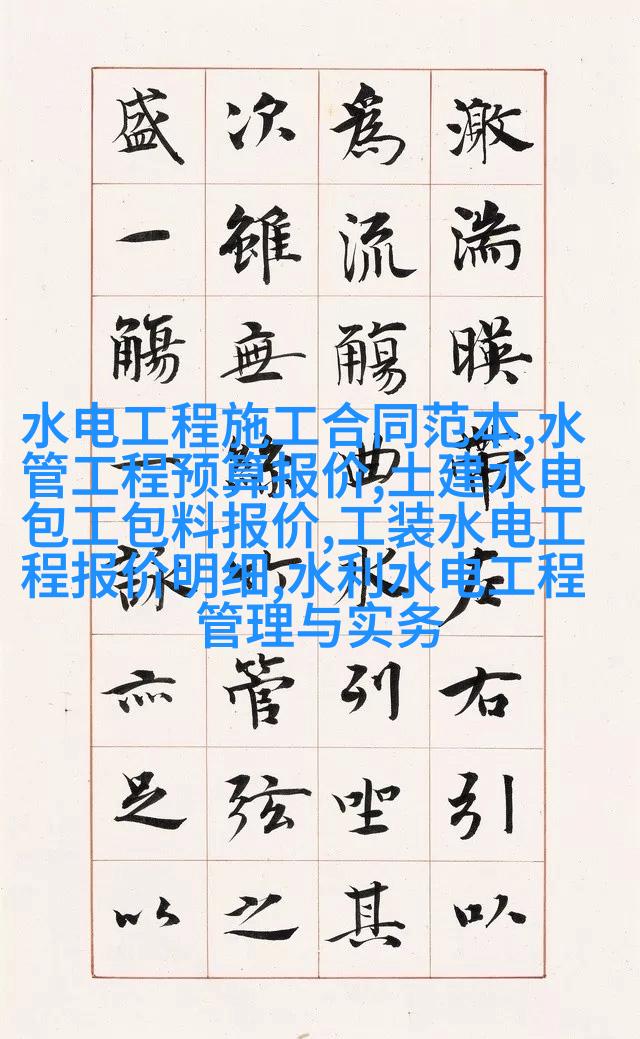 激湍暎帶左右引以
為流觴曲水列坐其
次雖無絲竹管弦之
盛一觴一詠亦足以
水电工程施工合同范本,水
管工程预算报价,土建水电
包工包料报价,工装水电工
程报价明细,水利水电工程
管理与实务